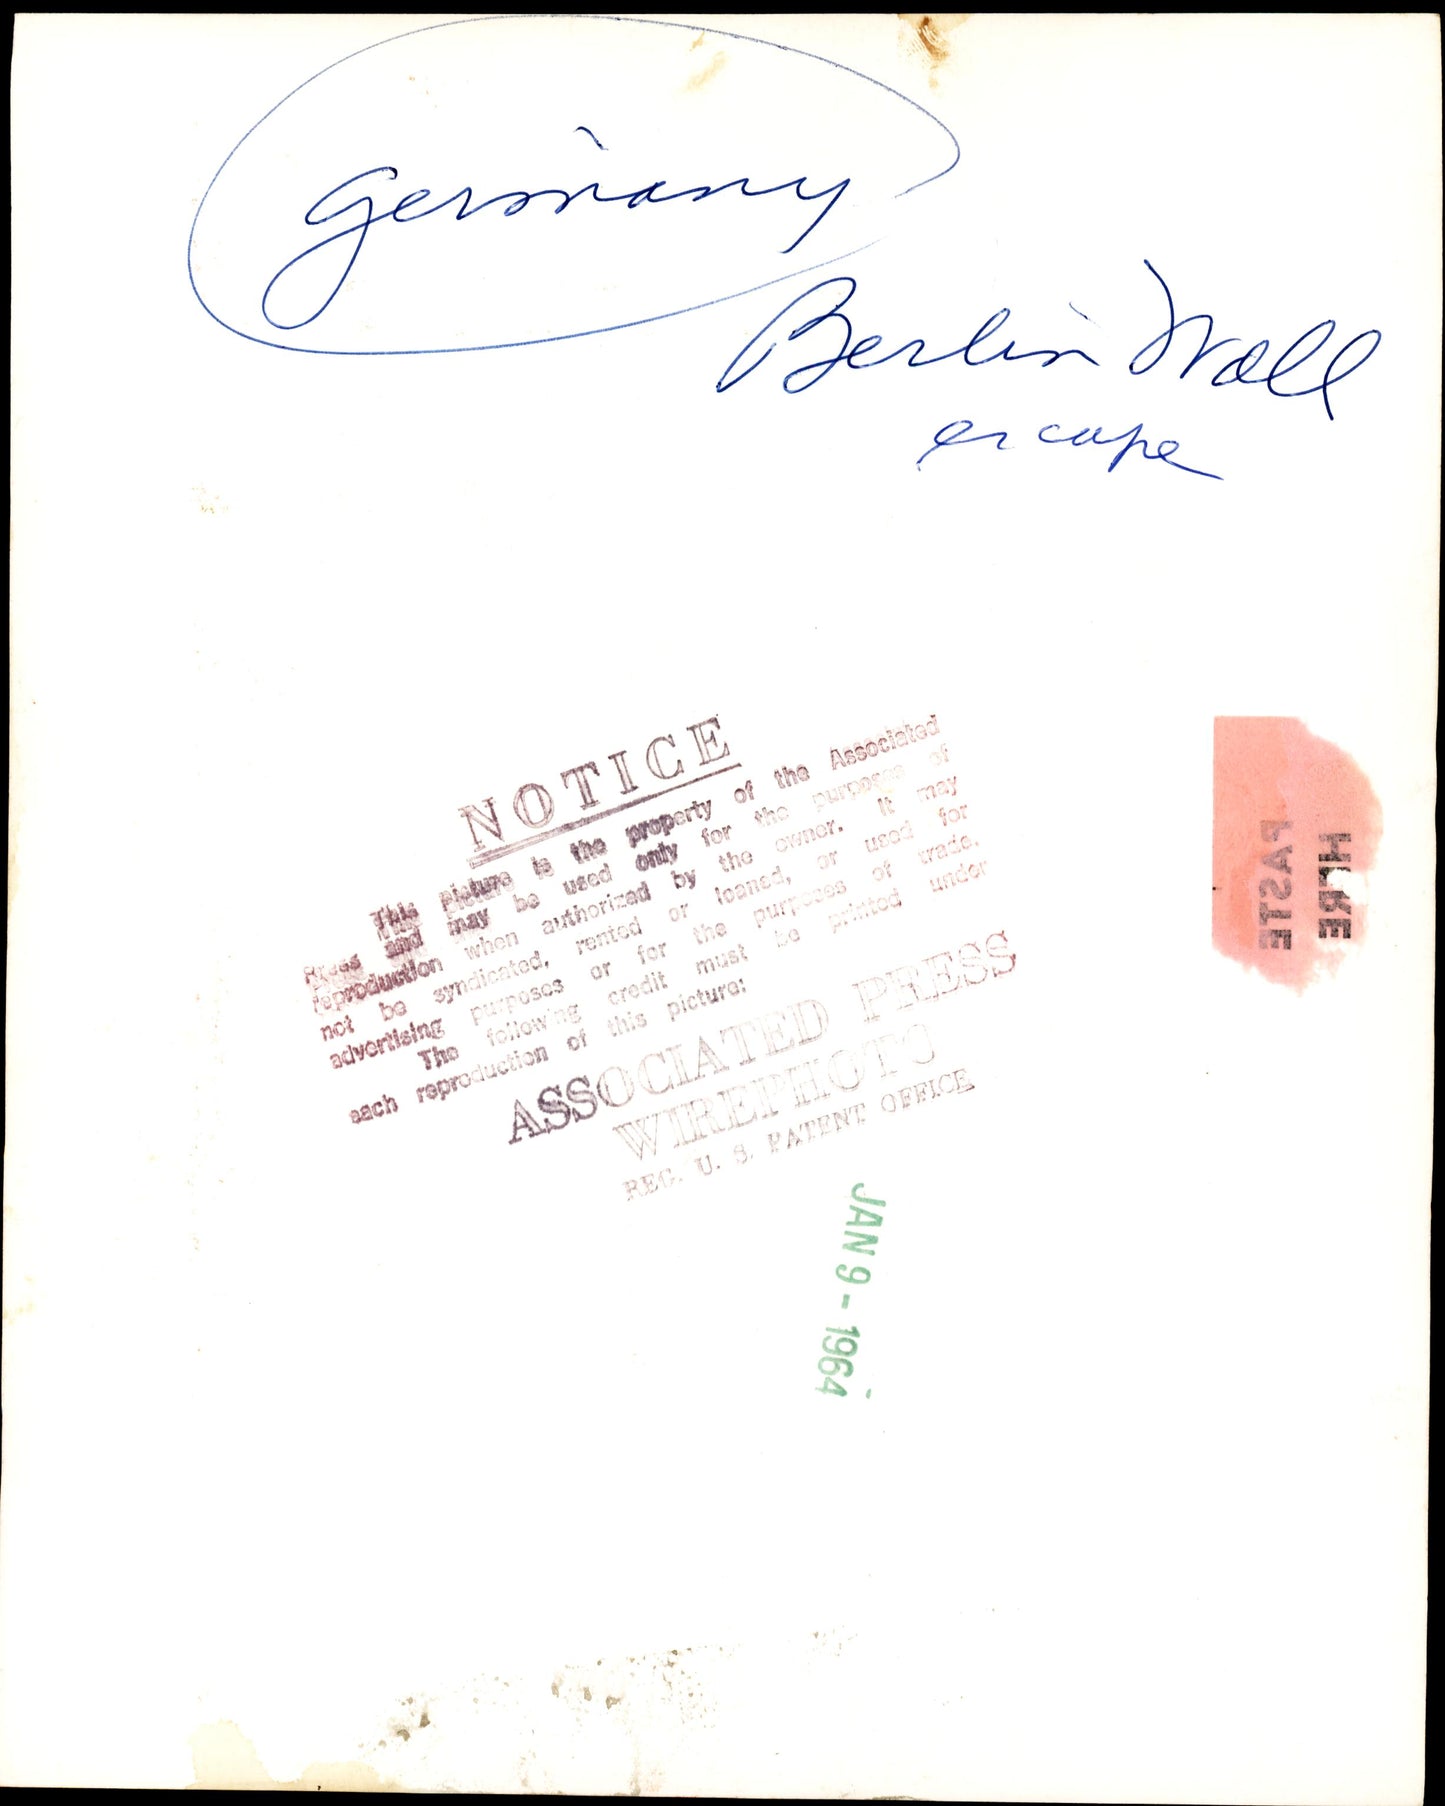 Germany
Berlin Wall
escape
NOTICE
This picture is the property of the Associated
Press and may be used only for the purposes of
reproduction when authorized by the owner. It may
not be syndicated, rented or loaned, or used for
advertising purposes or for the purposes of trade.
The following credit must be printed under
each reproduction of this picture:
ASSOCIATED PRESS
WIREPHOTO
REG. U. S. PATENT OFFICE
JAN 9 - 1964
PASTE
HERE